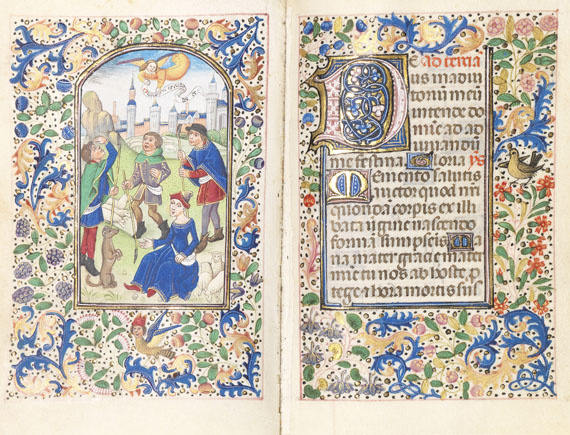 De ad tercia
us in adiu
toriū meū
intende do
mīe ad ad
iuuandū
me festina Gloria
Memento salutis
auctor quod nr̄i
quondā corpis ex illi
bata uirgine nascendo
formā sumpseris Ma
ria mater gracie mater
mīe tu nos ab hoste p
tege hora mortis sus